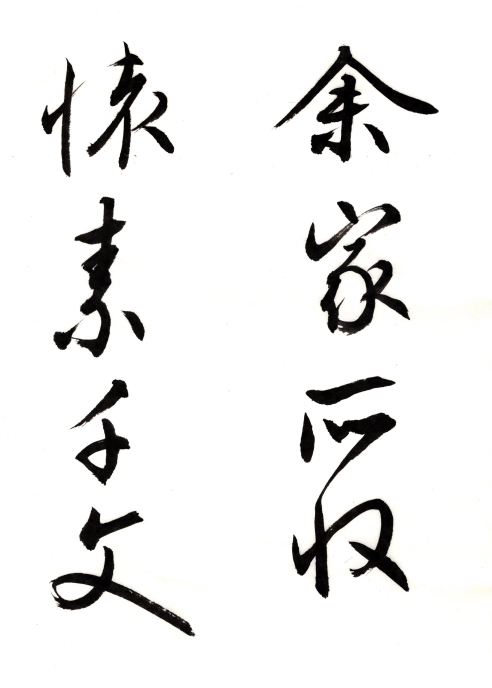 余家所收
懐素千文